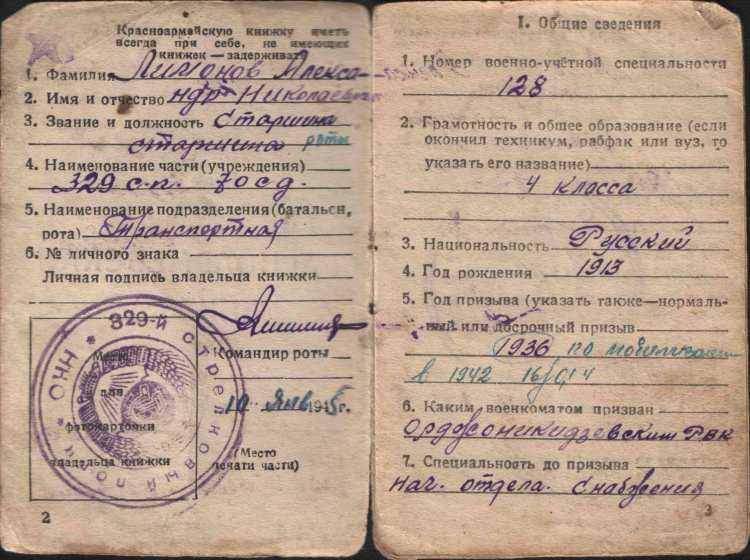 Красноармейскую книжку иметь
всегда при себе, не имеющих
книжек — задерживать
1. Фамилия Лимонов Алекса-
2. Имя и отчество ндр Николаевич
3. Звание и должность Старшина
старшина роты
4. Наименование части (учреждения)
329 с.п. 70 сд.
5. Наименование подразделения (батальон,
рота) Транспортная
6. № личного знака
Личная подпись владельца книжки
Место
для
фотокарточки
владельца книжки
329-й стрелковый полк * ОНН *
Командир роты
10 Янв 1945 г.
(Место
печати части)
2
I. Общие сведения
1. Номер военно-учётной специальности
128
2. Грамотность и общее образование (если
окончил техникум, рабфак или вуз, то
указать его название)
4 класса
3. Национальность Русский
4. Год рождения 1913
5. Год призыва (указать также—нормаль-
ный или досрочный призыв
1936 по мобилизации
в 1942
6. Каким военкоматом призван
Орджоникидзевским РВК
7. Специальность до призыва
нач. отдела. снабжения
3